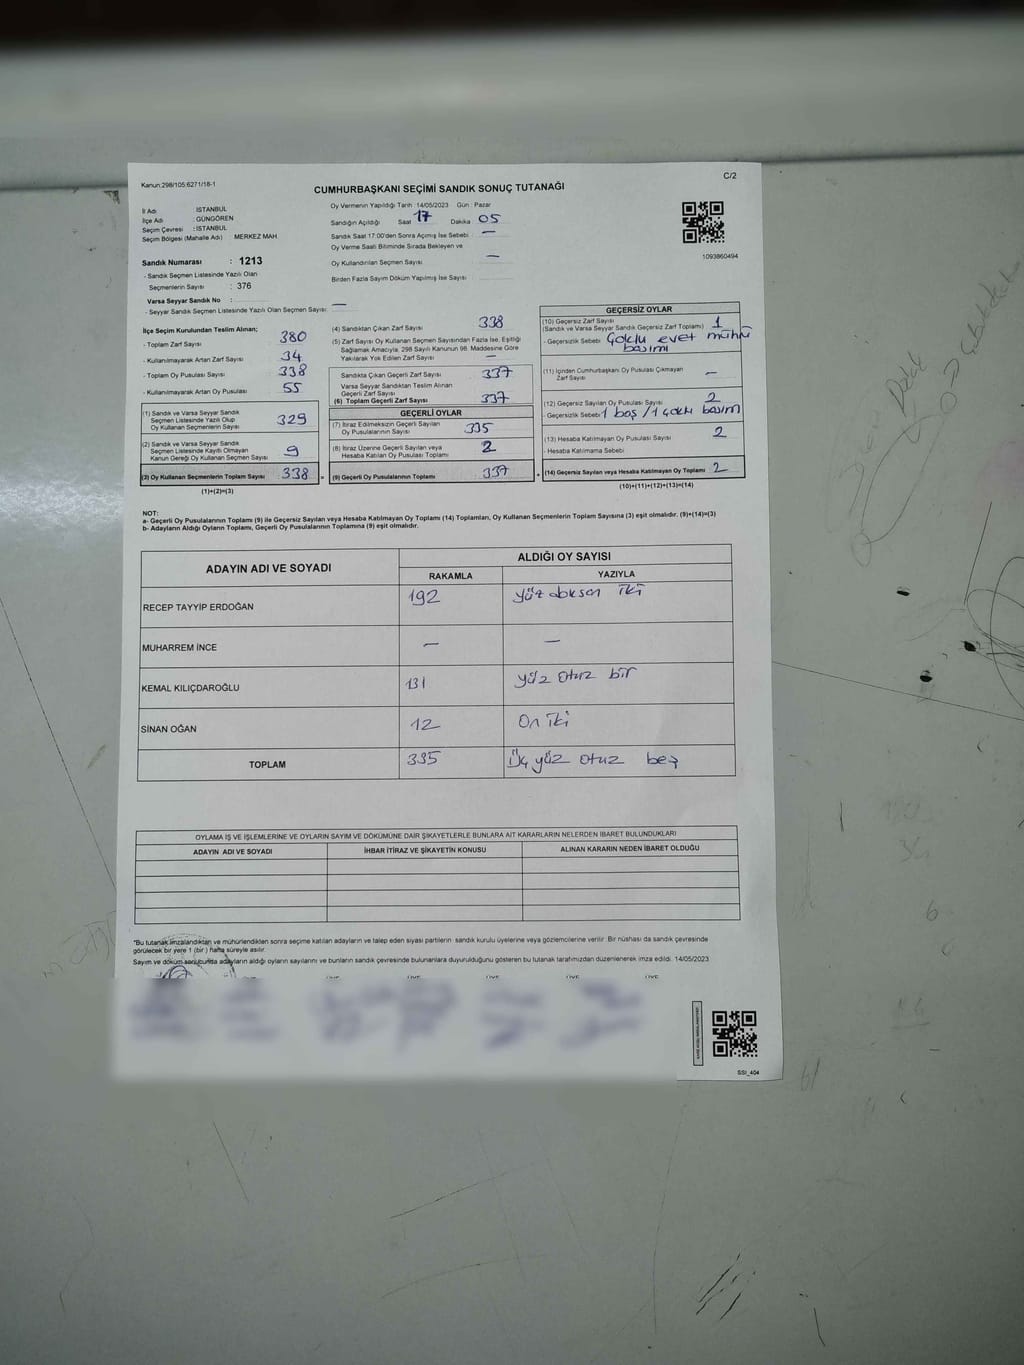 Kanun:298/105;6271/18-1
C/2
CUMHURBAŞKANI SEÇİMİ SANDIK SONUÇ TUTANAĞI
İl Adı : İSTANBUL
İlçe Adı : GÜNGÖREN
Seçim Çevresi : İSTANBUL
Seçim Bölgesi (Mahalle Adı) MERKEZ MAH.
Sandık Numarası : 1213
- Sandık Seçmen Listesinde Yazılı Olan
Seçmenlerin Sayısı : 376
Varsa Seyyar Sandık No :
- Seyyar Sandık Seçmen Listesinde Yazılı Olan Seçmen Sayısı: —
Oy Vermenin Yapıldığı Tarih :14/05/2023 Gün : Pazar
Sandığın Açıldığı Saat 17 Dakika 05
Sandık Saat 17:00'den Sonra Açılmış İse Sebebi —
Oy Verme Saati Bitiminde Sırada Bekleyen ve
Oy Kullandırılan Seçmen Sayısı —
Birden Fazla Sayım Döküm Yapılmış İse Sayısı
1093860494
İlçe Seçim Kurulundan Teslim Alınan;
- Toplam Zarf Sayısı 380
- Kullanılmayarak Artan Zarf Sayısı 34
- Toplam Oy Pusulası Sayısı 338
- Kullanılmayarak Artan Oy Pusulası 55
(1) Sandık ve Varsa Seyyar Sandık
Seçmen Listesinde Yazılı Olup
Oy Kullanan Seçmenlerin Sayısı 329
(2) Sandık ve Varsa Seyyar Sandık
Seçmen Listesinde Kayıtlı Olmayan
Kanun Gereği Oy Kullanan Seçmen Sayısı 9
(3) Oy Kullanan Seçmenlerin Toplam Sayısı 338 =
(1)+(2)=(3)
(4) Sandıktan Çıkan Zarf Sayısı 338
(5) Zarf Sayısı Oy Kullanan Seçmen Sayısından Fazla İse, Eşitliği
Sağlamak Amacıyla, 298 Sayılı Kanunun 98. Maddesine Göre
Yakılarak Yok Edilen Zarf Sayısı —
Sandıkta Çıkan Geçerli Zarf Sayısı 337
Varsa Seyyar Sandıktan Teslim Alınan
Geçerli Zarf Sayısı
(6) Toplam Geçerli Zarf Sayısı 337
GEÇERLİ OYLAR
(7) İtiraz Edilmeksizin Geçerli Sayılan
Oy Pusulalarının Sayısı 335
(8) İtiraz Üzerine Geçerli Sayılan veya
Hesaba Katılan Oy Pusulası Toplamı 2
(9) Geçerli Oy Pusulalarının Toplamı 337 +
GEÇERSİZ OYLAR
(10) Geçersiz Zarf Sayısı 1
(Sandık ve Varsa Seyyar Sandık Geçersiz Zarf Toplamı)
- Geçersizlik Sebebi Çoklu evet mührü
basımı
(11) İçinden Cumhurbaşkanı Oy Pusulası Çıkmayan
Zarf Sayısı —
(12) Geçersiz Sayılan Oy Pusulası Sayısı 2
- Geçersizlik Sebebi 1 boş / 1 çoklu basım
(13) Hesaba Katılmayan Oy Pusulası Sayısı 2
- Hesaba Katılmama Sebebi
(14) Geçersiz Sayılan veya Hesaba Katılmayan Oy Toplamı 2
(10)+(11)+(12)+(13)=(14)
NOT:
a- Geçerli Oy Pusulalarının Toplamı (9) ile Geçersiz Sayılan veya Hesaba Katılmayan Oy Toplamı (14) Toplamları, Oy Kullanan Seçmenlerin Toplam Sayısına (3) eşit olmalıdır. (9)+(14)=(3)
b- Adayların Aldığı Oyların Toplamı, Geçerli Oy Pusulalarının Toplamına (9) eşit olmalıdır.
ADAYIN ADI VE SOYADI
ALDIĞI OY SAYISI
RAKAMLA YAZIYLA
RECEP TAYYİP ERDOĞAN 192 yüz doksan iki
MUHARREM İNCE — —
KEMAL KILIÇDAROĞLU 131 yüz otuz bir
SİNAN OĞAN 12 On iki
TOPLAM 335 Üç yüz otuz beş
OYLAMA İŞ VE İŞLEMLERİNE VE OYLARIN SAYIM VE DÖKÜMÜNE DAİR ŞİKAYETLERLE BUNLARA AİT KARARLARIN NELERDEN İBARET BULUNDUKLARI
ADAYIN ADI VE SOYADI İHBAR İTİRAZ VE ŞİKAYETİN KONUSU ALINAN KARARIN NEDEN İBARET OLDUĞU
*Bu tutanak imzalandıktan ve mühürlendikten sonra seçime katılan adayların ve talep eden siyasi partilerin sandık kurulu üyelerine veya gözlemcilerine verilir. Bir nüshası da sandık çevresinde
görülecek bir yere 1 (bir) hafta süreyle asılır.
Sayım ve döküm sonucunda adayların aldığı oyların sayılarını ve bunların sandık çevresinde bulunanlara duyurulduğunu gösteren bu tutanak tarafımızdan düzenlenerek imza edildi. 14/05/2023
SSİ_404